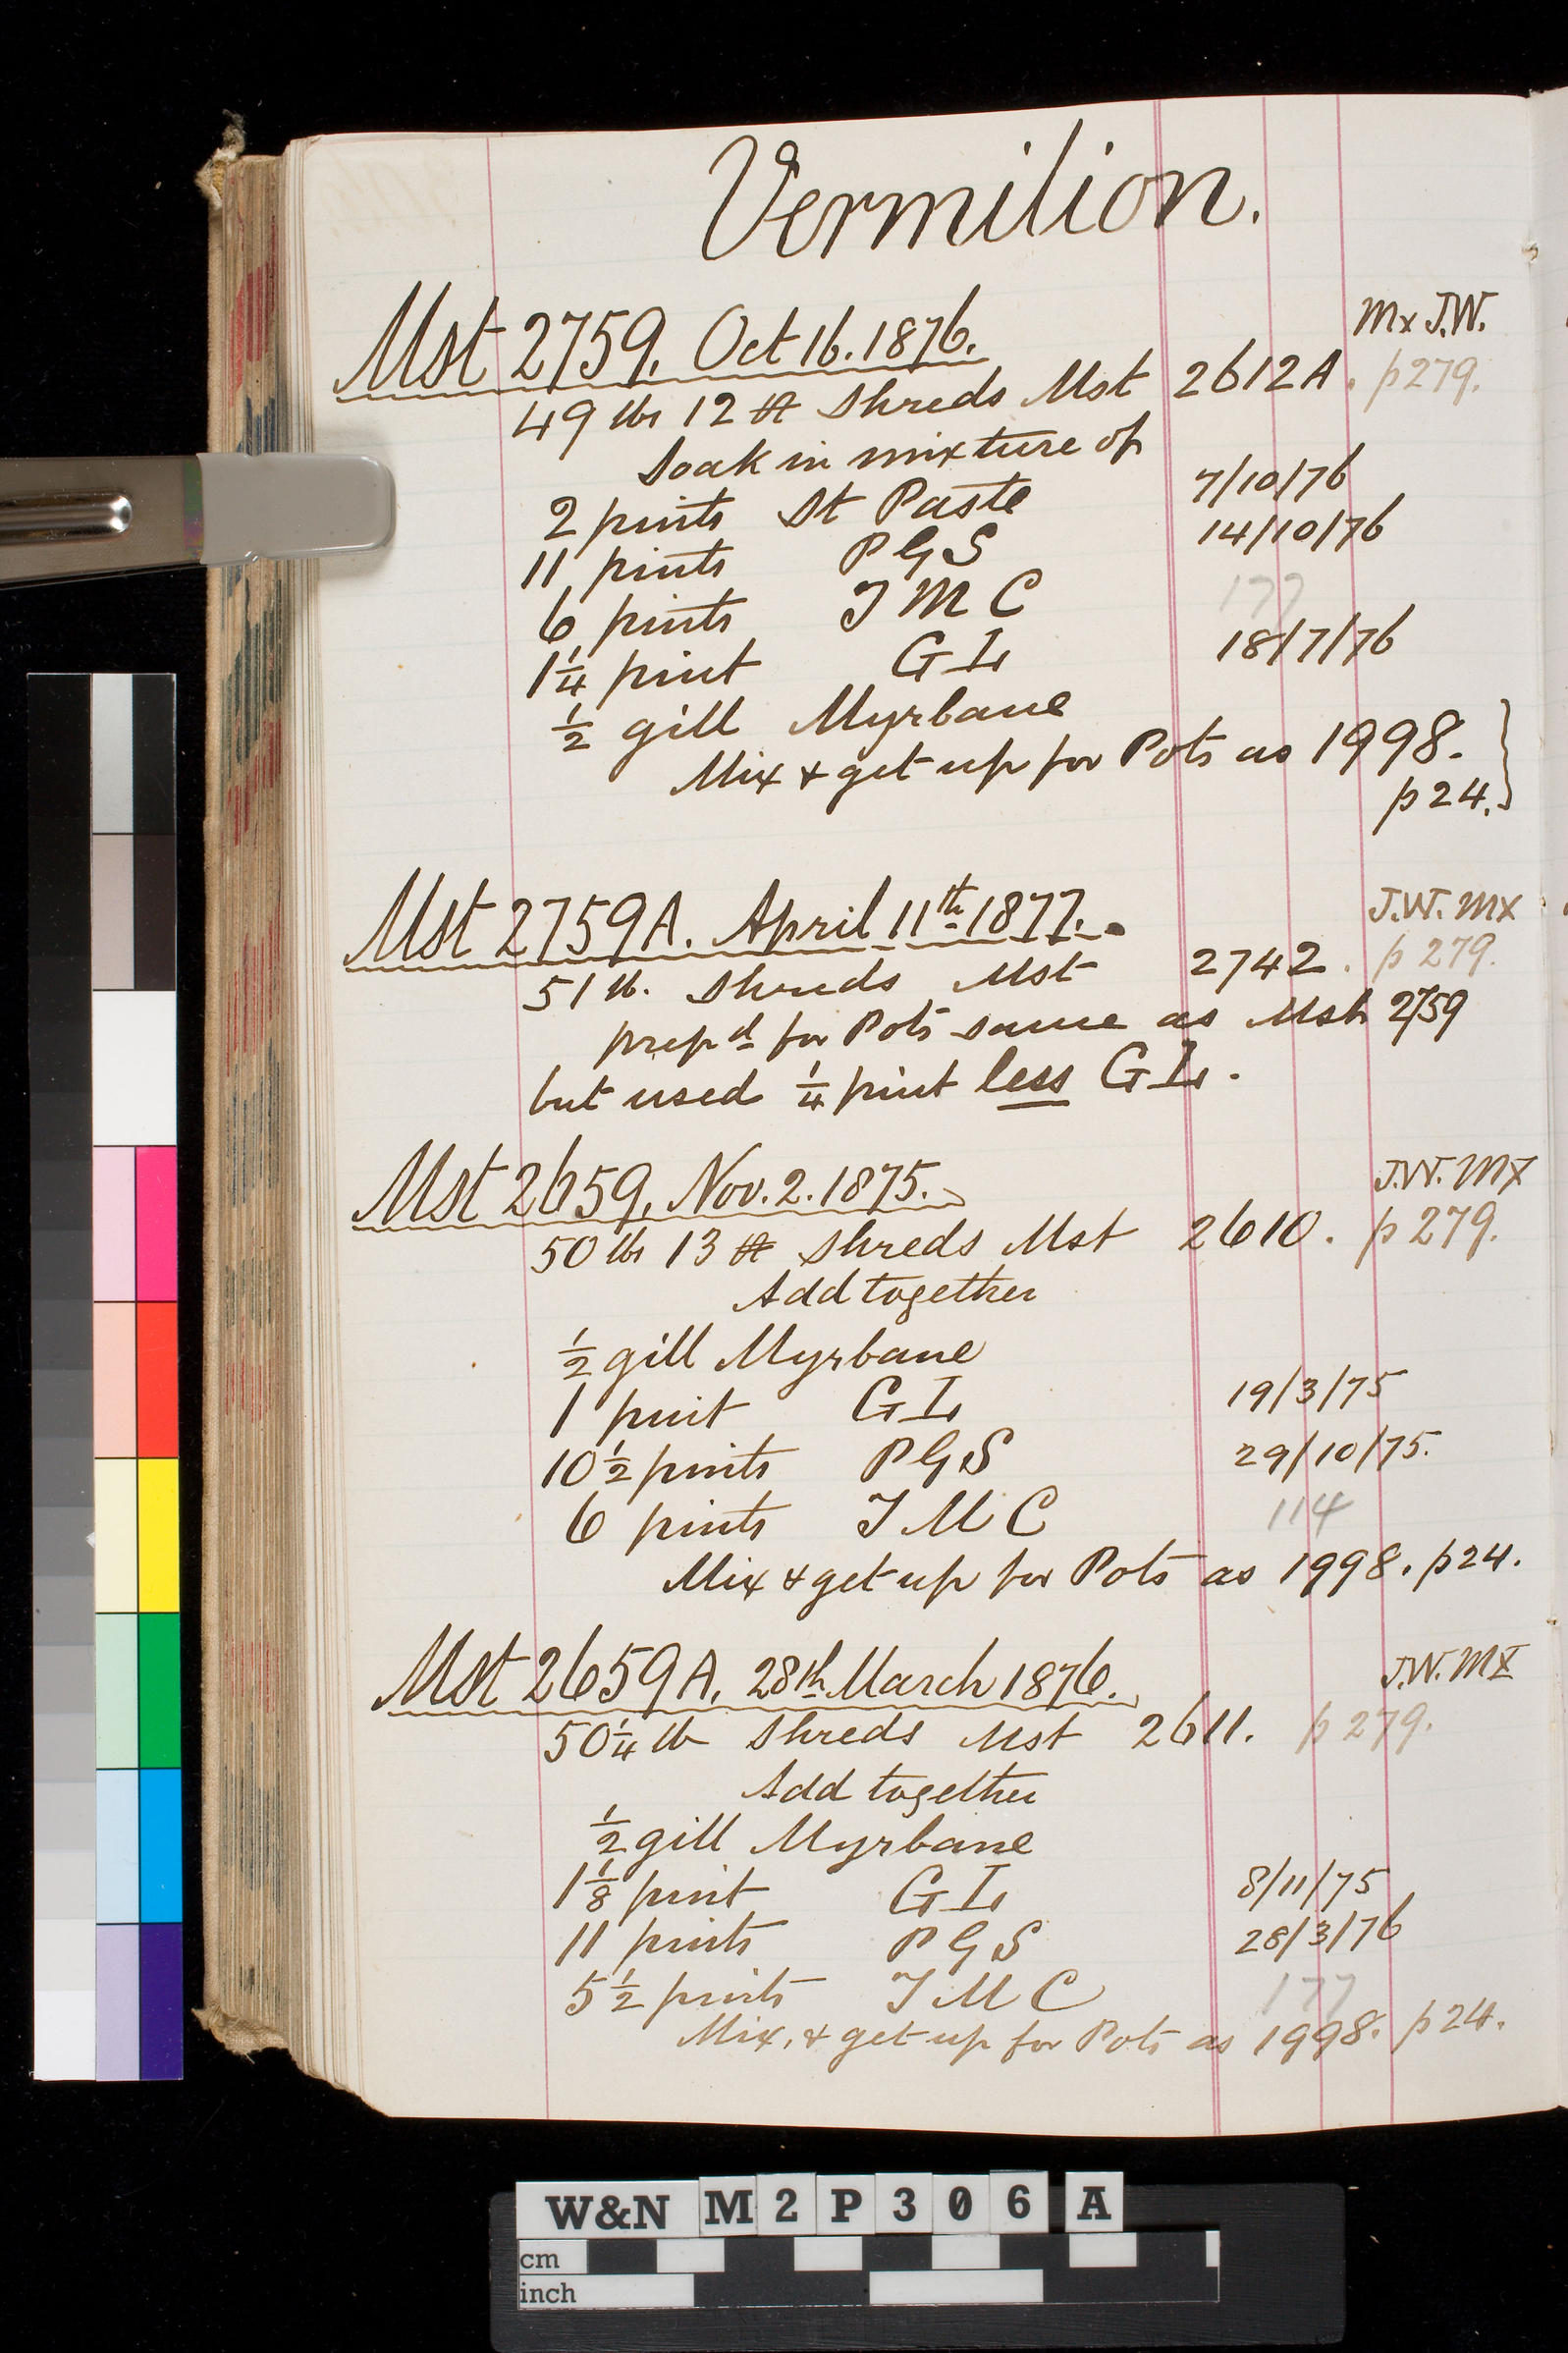 Vermilion.
Mst 2759. Oct 16. 1876. Mx J.W.
49 lbs 12 oz Shreds Mst 2612A. p279.
Soak in mixture of
2 pints St Paste 7/10/76
11 pints PGS 14/10/76
6 pints TMC 177
1 1/4 pint GL 18/7/76
1/2 gill Myrbane
Mix & get up for Pots as 1998.
p24.
Mst 2759A. April 11th 1877. J.W. Mx
51 lb. Shreds Mst 2742. p279.
prepd for Pots same as Mst 2759
but used 1/4 pint less GL.
Mst 2659. Nov. 2. 1875. J.W. Mx
50 lbs 13 oz Shreds Mst 2610. p279.
Add together
1/2 gill Myrbane
1 pint GL 19/3/75
10 1/2 pints PGS 29/10/75.
6 pints TMC 114
Mix & get up for Pots as 1998. p24.
Mst 2659A. 28th March 1876. J.W. Mx
50 1/4 lb Shreds Mst 2611. p279.
Add together
1/2 gill Myrbane
1 1/8 pint GL 8/11/75
11 pints PGS 28/3/76
5 1/2 pints TMC 177
Mix, & get up for Pots as 1998. p24.
W&N M2P306A
cm
inch